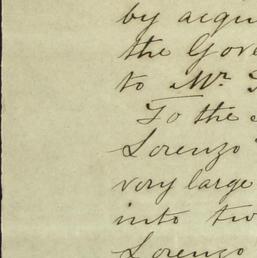 by acqu
the Gove
to Mr.
To the
Lorenzo
very large
into tw
Lorenzo